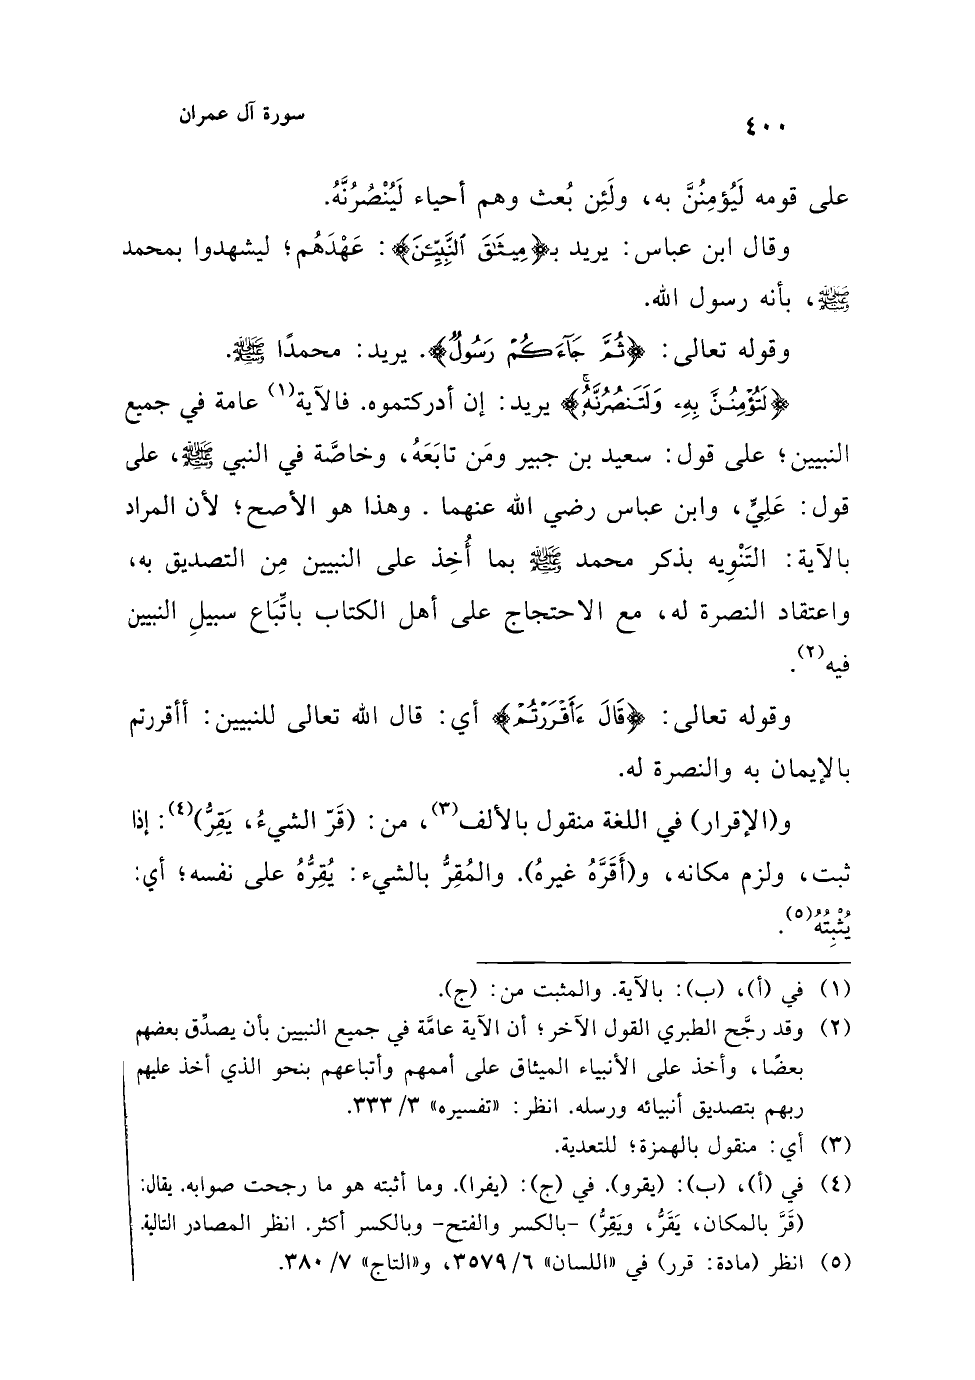 ٤٠٠
سورة آل عمران
على قومه لَيُؤمِنُنَّ به، ولَئِن بُعث وهم أحياء لَيُنْصُرُنَّهُ.
وقال ابن عباس: يريد بـ﴿مِيثَٰقَ ٱلنَّبِيِّـۧنَ﴾: عَهْدَهُم؛ ليشهدوا بمحمد
ﷺ، بأنه رسول الله.
وقوله تعالى: ﴿ثُمَّ جَآءَكُمْ رَسُولٌ﴾. يريد: محمدًا ﷺ.
﴿لَتُؤْمِنُنَّ بِهِۦ وَلَتَنصُرُنَّهُۥۚ﴾ يريد: إن أدركتموه. فالآية(١) عامة في جميع
النبيين؛ على قول: سعيد بن جبير ومَن تابَعَهُ، وخاصَّة في النبي ﷺ، على
قول: عَلِيٍّ، وابن عباس رضي الله عنهما . وهذا هو الأصح؛ لأن المراد
بالآية: التَنْوِيه بذكر محمد ﷺ بما أُخِذ على النبيين مِن التصديق به،
واعتقاد النصرة له، مع الاحتجاج على أهل الكتاب باتِّبَاع سبيلِ النبيين
فيه(٢).
وقوله تعالى: ﴿قَالَ ءَأَقْرَرْتُمْ﴾ أي: قال الله تعالى للنبيين: أأقررتم
بالإيمان به والنصرة له.
و(الإقرار) في اللغة منقول بالألف(٣)، من: (قَرّ الشيءُ، يَقِرُّ)(٤): إذا
ثبت، ولزم مكانه، و(أَقَرَّهُ غيرهُ). والمُقِرُّ بالشيء: يُقِرُّهُ على نفسه؛ أي:
يُثْبِتُهُ(٥).
(١) في (أ)، (ب): بالآية. والمثبت من: (ج).
(٢) وقد رجَّح الطبري القول الآخر؛ أن الآية عامَّة في جميع النبيين بأن يصدِّق بعضهم
بعضًا، وأخذ على الأنبياء الميثاق على أممهم وأتباعهم بنحو الذي أخذ عليهم
ربهم بتصديق أنبيائه ورسله. انظر: «تفسيره» ٣/ ٣٣٣.
(٣) أي: منقول بالهمزة؛ للتعدية.
(٤) في (أ)، (ب): (يقرو). في (ج): (يفرا). وما أثبته هو ما رجحت صوابه. يقال:
(قَرَّ بالمكان، يَقَرُّ، ويَقِرُّ) -بالكسر والفتح- وبالكسر أكثر. انظر المصادر التالية.
(٥) انظر (مادة: قرر) في «اللسان» ٦/ ٣٥٧٩، و«التاج» ٧/ ٣٨٠.